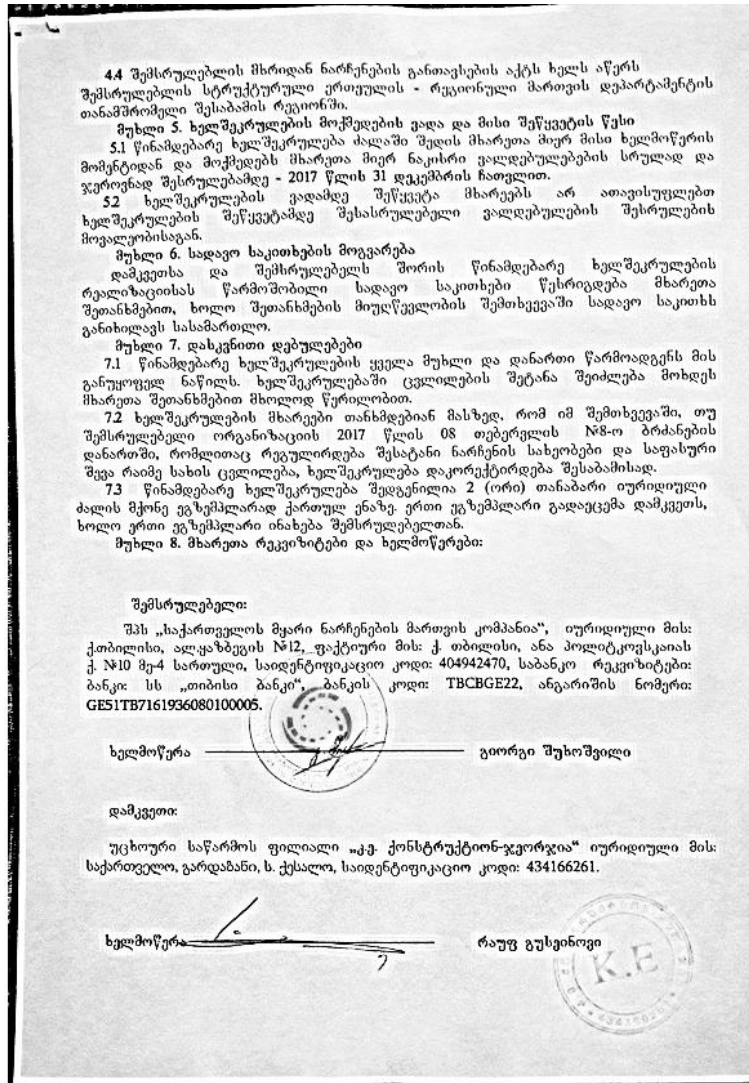 4.4 შემსრულებლის მხრიდან ნარჩენების განთავსების აქტს ხელს აწერს
შემსრულებლის სტრუქტურული ერთეულის - რეგიონული მართვის დეპარტამენტის
თანამშრომელი შესაბამის რეგიონში.
მუხლი 5. ხელშეკრულების მოქმედების ვადა და მისი შეწყვეტის წესი
5.1 წინამდებარე ხელშეკრულება ძალაში შედის მხარეთა მიერ მისი ხელმოწერის
მომენტიდან და მოქმედებს მხარეთა მიერ ნაკისრი ვალდებულებების სრულად და
ჯეროვნად შესრულებამდე - 2017 წლის 31 დეკემბრის ჩათვლით.
5.2 ხელშეკრულების ვადამდე შეწყვეტა მხარეებს არ ათავისუფლებთ
ხელშეკრულების შეწყვეტამდე შესასრულებელი ვალდებულების შესრულების
მოვალეობისაგან.
მუხლი 6. სადავო საკითხების მოგვარება
დამკვეთსა და შემსრულებელს შორის წინამდებარე ხელშეკრულების
რეალიზაციისას წარმოშობილი სადავო საკითხები წესრიგდება მხარეთა
შეთანხმებით, ხოლო შეთანხმების მიუღწევლობის შემთხვევაში სადავო საკითხს
განიხილავს სასამართლო.
მუხლი 7. დასკვნითი დებულებები
7.1 წინამდებარე ხელშეკრულების ყველა მუხლი და დანართი წარმოადგენს მის
განუყოფელ ნაწილს. ხელშეკრულებაში ცვლილების შეტანა შეიძლება მოხდეს
მხარეთა შეთანხმებით მხოლოდ წერილობით.
7.2 ხელშეკრულების მხარეები თანხმდებიან მასზედ, რომ იმ შემთხვევაში, თუ
შემსრულებელი ორგანიზაციის 2017 წლის 08 თებერვლის №8-ო ბრძანების
დანართში, რომლითაც რეგულირდება შესატანი ნარჩენის სახეობები და საფასური
შევა რაიმე სახის ცვლილება, ხელშეკრულება დაკორექტირდება შესაბამისად.
7.3 წინამდებარე ხელშეკრულება შედგენილია 2 (ორი) თანაბარი იურიდიული
ძალის მქონე ეგზემპლარად ქართულ ენაზე. ერთი ეგზემპლარი გადაეცემა დამკვეთს,
ხოლო ერთი ეგზემპლარი ინახება შემსრულებელთან.
მუხლი 8. მხარეთა რეკვიზიტები და ხელმოწერები:
შემსრულებელი:
შპს „საქართველოს მყარი ნარჩენების მართვის კომპანია“, იურიდიული მის:
ქ.თბილისი, ალ.ყაზბეგის №12, ფაქტიური მის: ქ. თბილისი, ანა პოლიტკოვსკაიას
ქ. №10 მე-4 სართული, საიდენტიფიკაციო კოდი: 404942470, საბანკო რეკვიზიტები:
ბანკი: სს „თიბისი ბანკი“, ბანკის კოდი: TBCBGE22, ანგარიშის ნომერი:
GE51TB7161936080100005.
ხელმოწერა გიორგი შუხოშვილი
დამკვეთი:
უცხოური საწარმოს ფილიალი „კ.ე. ქონსტრუქტიონ-ჯეორჯია“ იურიდიული მის:
საქართველო, გარდაბანი, ს. ქესალო, საიდენტიფიკაციო კოდი: 434166261.
ხელმოწერა რაუფ გუსეინოვი
K.E